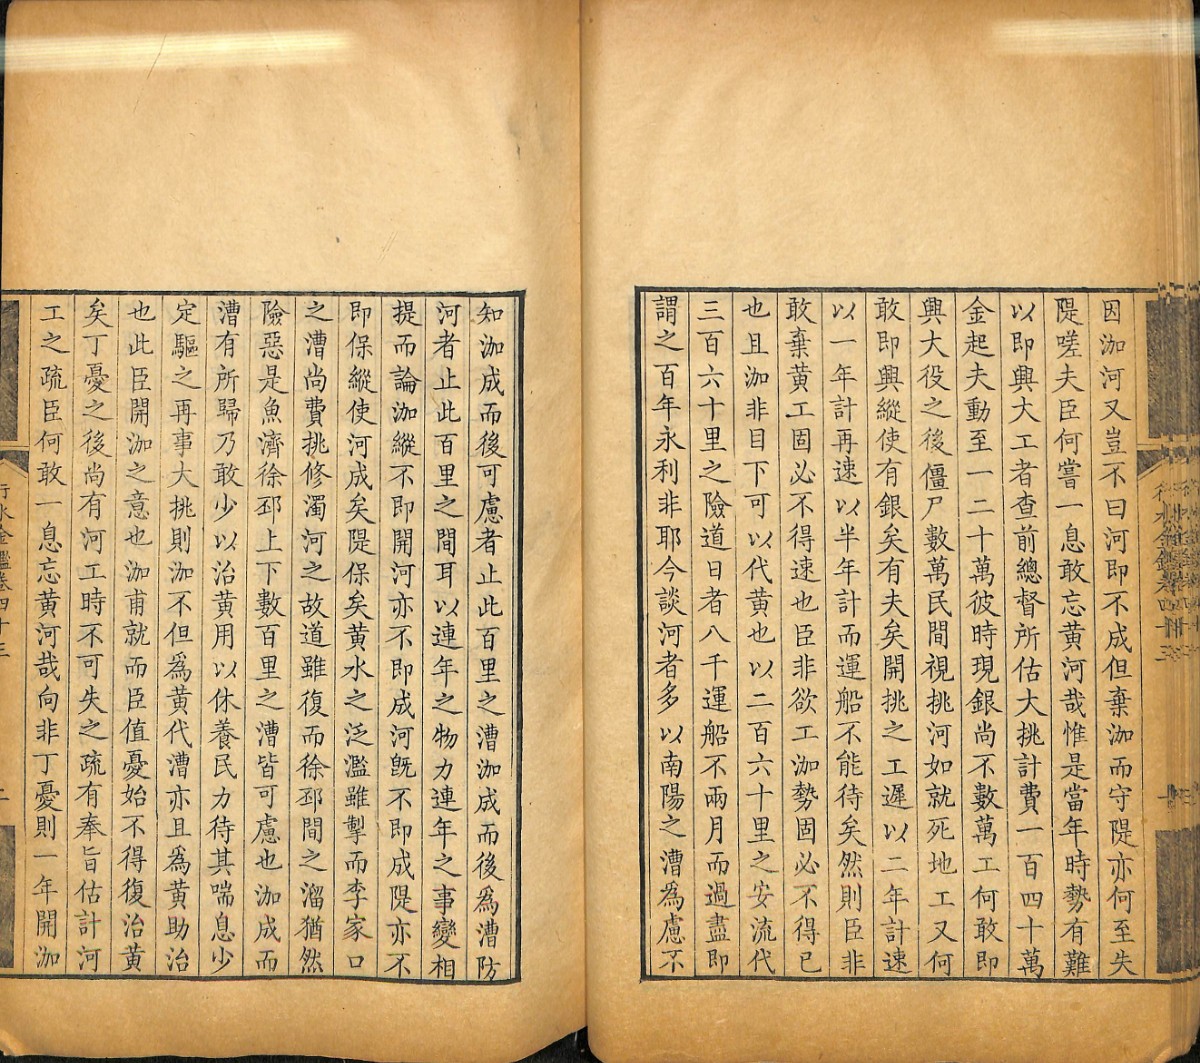 因泇河又豈不曰河即不成但棄泇而守隄亦何至失
隄嗟夫臣何嘗一息敢忘黄河哉惟是當年時勢有難
以即興大工者查前總督所估大挑計費一百四十萬
金起夫動至一二十萬彼時現銀尚不數萬工何敢即
興大役之後僵尸數萬民間視挑河如就死地工又何
敢即興縱使有銀矣有夫矣開挑之工遲以二年計速
以一年計再速以半年計而運船不能待矣然則臣非
敢棄黄工固必不得速也臣非欲工泇勢固必不得已
也且泇非目下可以代黄也以二百六十里之安流代
三百六十里之險道日者八千運船不兩月而過盡即
謂之百年永利非耶今談河者多以南陽之漕為慮不
知泇成而後可慮者止此百里之漕泇成而後為漕防
河者止此百里之間耳以連年之物力連年之事變相
提而論泇縱不即開河亦不即成河旣不即成隄亦不
即保縱使河成矣隄保矣黄水之泛濫雖掣而李家口
之漕尚費挑修濁河之故道雖復而徐邳間之溜猶然
險惡是魚濟徐邳上下數百里之漕皆可慮也泇成而
漕有所歸乃敢少以治黄用以休養民力待其喘息少
定驅之再事大挑則泇不但為黄代漕亦且為黄助治
也此臣開泇之意也泇甫就而臣值憂始不得復治黄
矣丁憂之後尚有河工時不可失之疏有奉旨估計河
工之疏臣何敢一息忘黄河哉向非丁憂則一年開泇
行水金鑑卷四十三